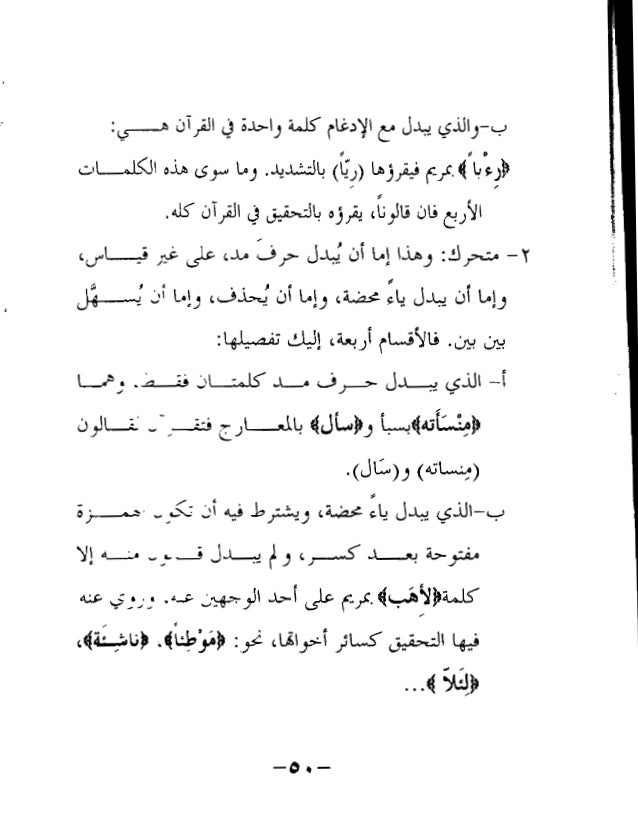 ب-والذي يبدل مع الإدغام كلمة واحدة في القرآن هـــي:
﴿رِءْياً﴾ بمريم فيقرؤها (ريّاً) بالتشديد. وما سوى هذه الكلمـــات
الأربع فان قالوناً، يقرؤه بالتحقيق في القرآن كله.
٢- متحرك: وهذا إما أن يُبدل حرفَ مد، على غير قيـــاس،
وإما أن يبدل ياءً محضة، وإما أن يُحذف، وإما أن يُســـهَّل
بين بين. فالأقسام أربعة، إليك تفصيلها:
أ- الذي يبــدل حــرف مــد كلمتــان فقــط. وهمــا
﴿مِنْسَأَته﴾بسبأ و﴿سأل﴾ بالمعــارج لقــالون
(مِنساته) و(سَال).
ب-الذي يبدل ياءً محضة، ويشترط فيه أن همـــزة
مفتوحة بعـــد كســـر، ولم يبـــدل منـــه إلا
كلمة﴿لِأهَب﴾ بمريم على أحد الوجهين عنه. وروي عنه
فيها التحقيق كسائر أخواتها، نحو: ﴿مَوْطِئاً﴾. ﴿ناشِئَة﴾،
﴿لِئَلاّ ﴾...
-٥٠-